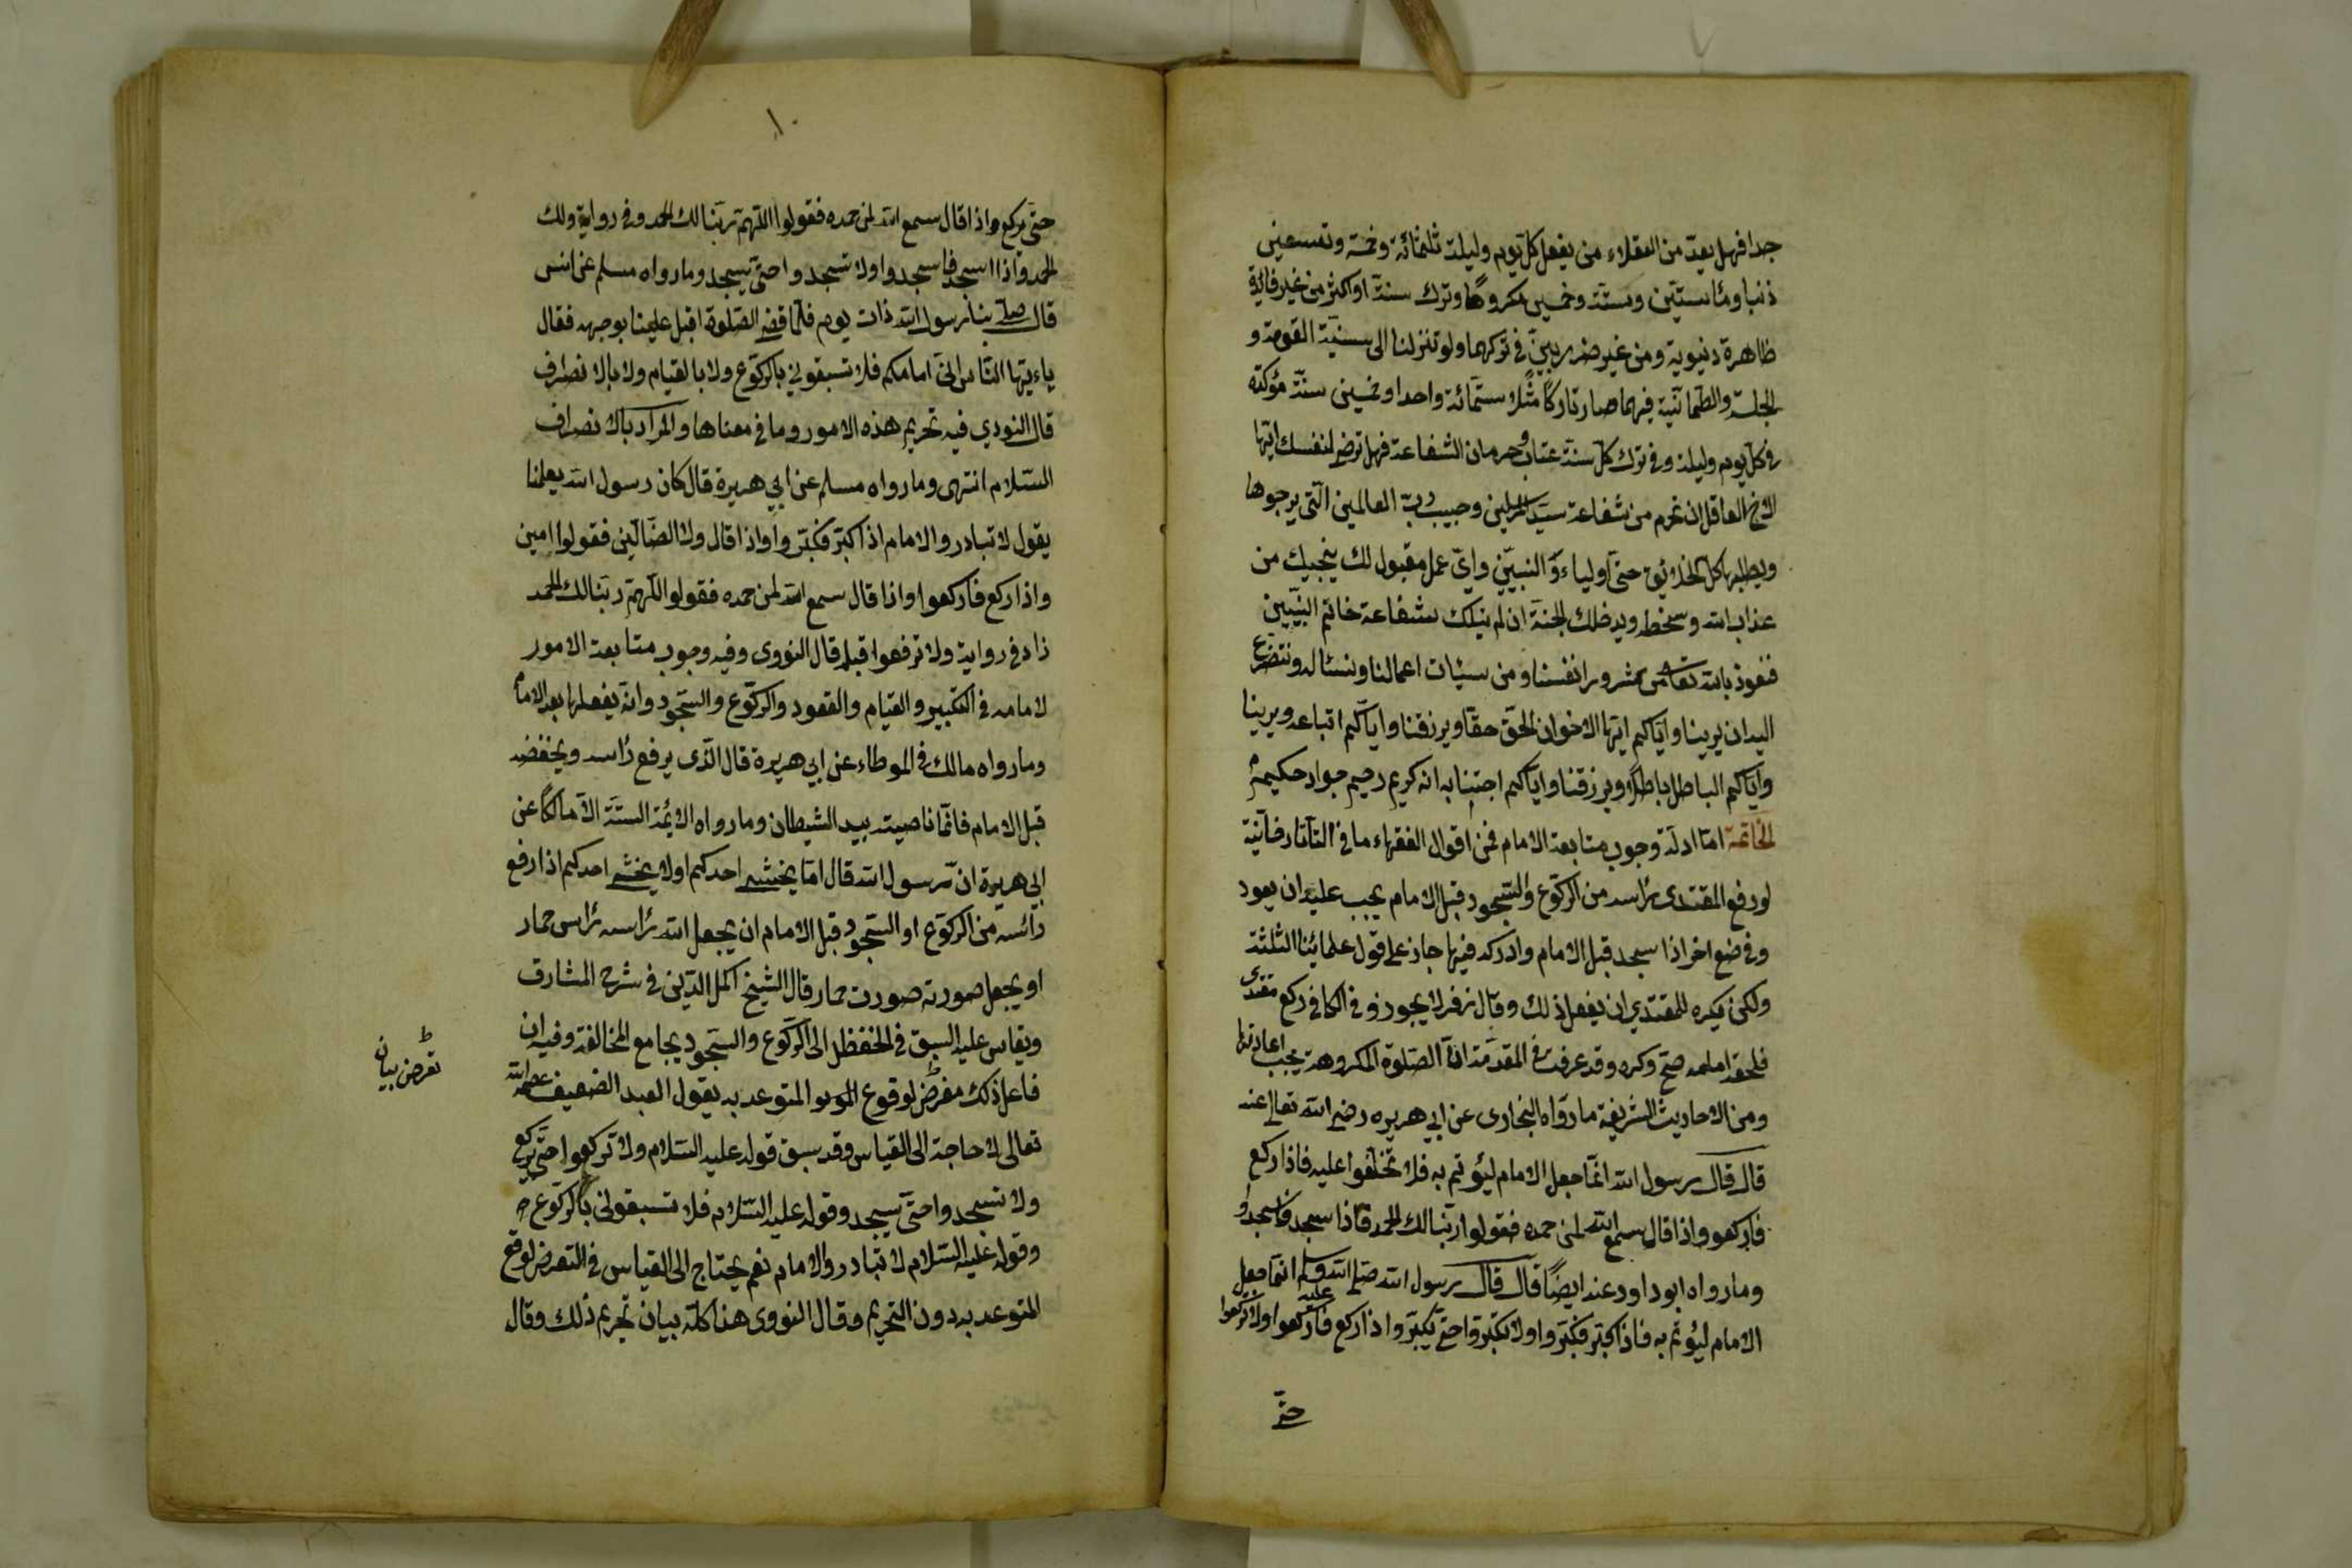 جدا فهل يعدّ من العقلاء من يفعل كلّ يوم وليلة ثلثمائة وخمسة وتسعين
ذنبا ومأستين وستّة وخمسين مكروهًا وترك سنة او اكثر من غير فائدة
ظاهرة دنيوية ومن غير ضرر بيّن في تركهما ولو تنزلنا الى سنيّة القومة و
الجلسة والطمانيّة فيهما صار تاركًا مثلا ستّمائة واحدا وخمسين سنّة مؤكدة
في كلّ يوم وليلة وفي ترك كلّ سنة عتاب وحرمان الشفاعة فهل ترضى لنفسك ايّها
الاخ العاقل ان تحرم من شفاعة سيّد المرسلين وحبيب ربّ العالمين الّتي يرجوها
ويطلبها كلّ الخلائق حتّى اولياء و النبيّين وايّ عمل مقبول لك ينجيك من
عذاب الله وسخطه ويدخلك الجنّة ان لم ينلك شفاعة خاتم النبيّين
فنعوذ بالله تعالى من شرور انفسنا ومن سيئات اعمالنا ونسئاله ونتضرع
اليه ان يرينا وايّاكم ايّها الاخوان الحقّ حقّا ويرزقنا وايّاكم اتباعه ويرينا
وايّاكم الباطل باطلا ويرزقنا وايّاكم اجتنابه انه كريم رحيم جواد حكيم
الخاتمة امّا ادلّة وجوب متابعة الامام فمن اقوال الفقهاء ما في التاتارخانية
لو رفع المقتدى رأسه من الركوع والسّجود قبل الامام يجب عليه ان يعود
وفي ضع اخر اذا سجد قبل الامام وادركه فيها جاز على قول علمائنا الثلثة
ولكن يكره للمقتدي ان يفعل ذلك وقال زفر لا يجوز و في الكافي ركع مقتدى
فلحقه امامه صحّ وكره وقد عرفت في المقدّمة انّ الصّلوة المكروهة يجب اعادتها
ومن الاحاديث الشّريفة ما رواه البخارى عن ابي هريره رضى الله تعالى عنه
قال قال رسول الله انّما جعل الامام ليؤتم به فلا تختلفوا عليه فاذا ركع
فاركعوا واذا قال سمع الله لمن حمده فقولوا ربّنا لك الحمد فاذا سجد فاسجدوا
وما رواه ابو داود عنه ايضًا قال قال رسول الله صلى الله عليه وسلم انّما جعل
الامام ليؤتم به فاذا كبّر فكبّروا ولا تكبّروا حتى يكبّر واذا ركع فاركعوا ولا تركعوا
حتى
١٠
حتّى يركع واذا قال سمع الله لمن حمده فقولوا اللّهمّ ربّنا لك الحمد وفي رواية ولك
الحمد واذا اسجد فاسجدوا ولا تسجدوا حتّى يسجد وما رواه مسلم عن انس
قال صلّى بنا رسول الله ذات يوم فلمّا قضى الصّلوة اقبل علينا بوجهه فقال
ياءيّها النّاس انّى امامكم فلا تسبقوني بالركوع ولا بالقيام ولا بالانصراف
قال النووي فيه تحريم هذه الامور وما في معناها والمراد بالانصراف
السّلام انتهى وما رواه مسلم عن ابي هريرة قال كان رسول الله يعلمنا
يقول لا تبادروا الامام اذا كبّر فكبّروا واذا قال ولا الضّالّين فقولوا امين
واذا ركع فاركعوا واذا قال سمع الله لمن حمده فقولوا اللّهمّ ربّنا لك الحمد
زاد في رواية ولا ترفعوا قبله قال النووى وفيه وجوب متابعة الامور
لامامه في التكبير والقيام والقعود والركوع والسّجود وانّه يفعلها بعد الامام
وما رواه مالك في الموطاء عن ابي هريرة قال الّذى يرفع رأسه ويخفضه
قبل الامام فانّما ناصيته بيد الشيطان وما رواه الائمّة السّتّة الّا مالكًا عن
ابي هريرة انّ رسول الله قال امّا يخشى احدكم اولا يخشى احدكم اذا رفع
رأسه من الركوع او السّجود قبل الامام ان يجعل الله رأسه رأس حمار
او يجعل صورته صورت حمار قال الشيخ اكمل الدّين في شرح المشارق
ويقاس عليه السبق في الخفظ الى الركوع والسّجود بجامع المخالفة وفيه ان
فاعل ذلك مفرض لوقوع المتوعد به يقول العبد الضعيف عصمه الله
تعالى لا حاجة الى القياس وقد سبق قوله عليه السّلام ولا تركعوا حتّى يركع
ولا تسجدوا حتّى يسجد وقوله عليه السّلام فلا تسبقونى بالركوع
وقوله عليه السّلام لا تبادروا الامام نعم يحتاج الى القياس في التعرض لوقع
المتوعد به دون التحريم وقال النووى هذا كلّه بيان تحريم ذلك وقال
تعرض بيان